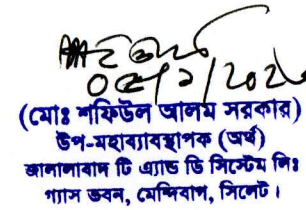 (মোঃ শফিউল আলম সরকার)
উপ-মহাব্যাবস্থাপক (অর্থ)
জালালাবাদ টি এ্যান্ড ডি সিস্টেম লিঃ
গ্যাস ভবন, মেন্দিবাগ, সিলেট।